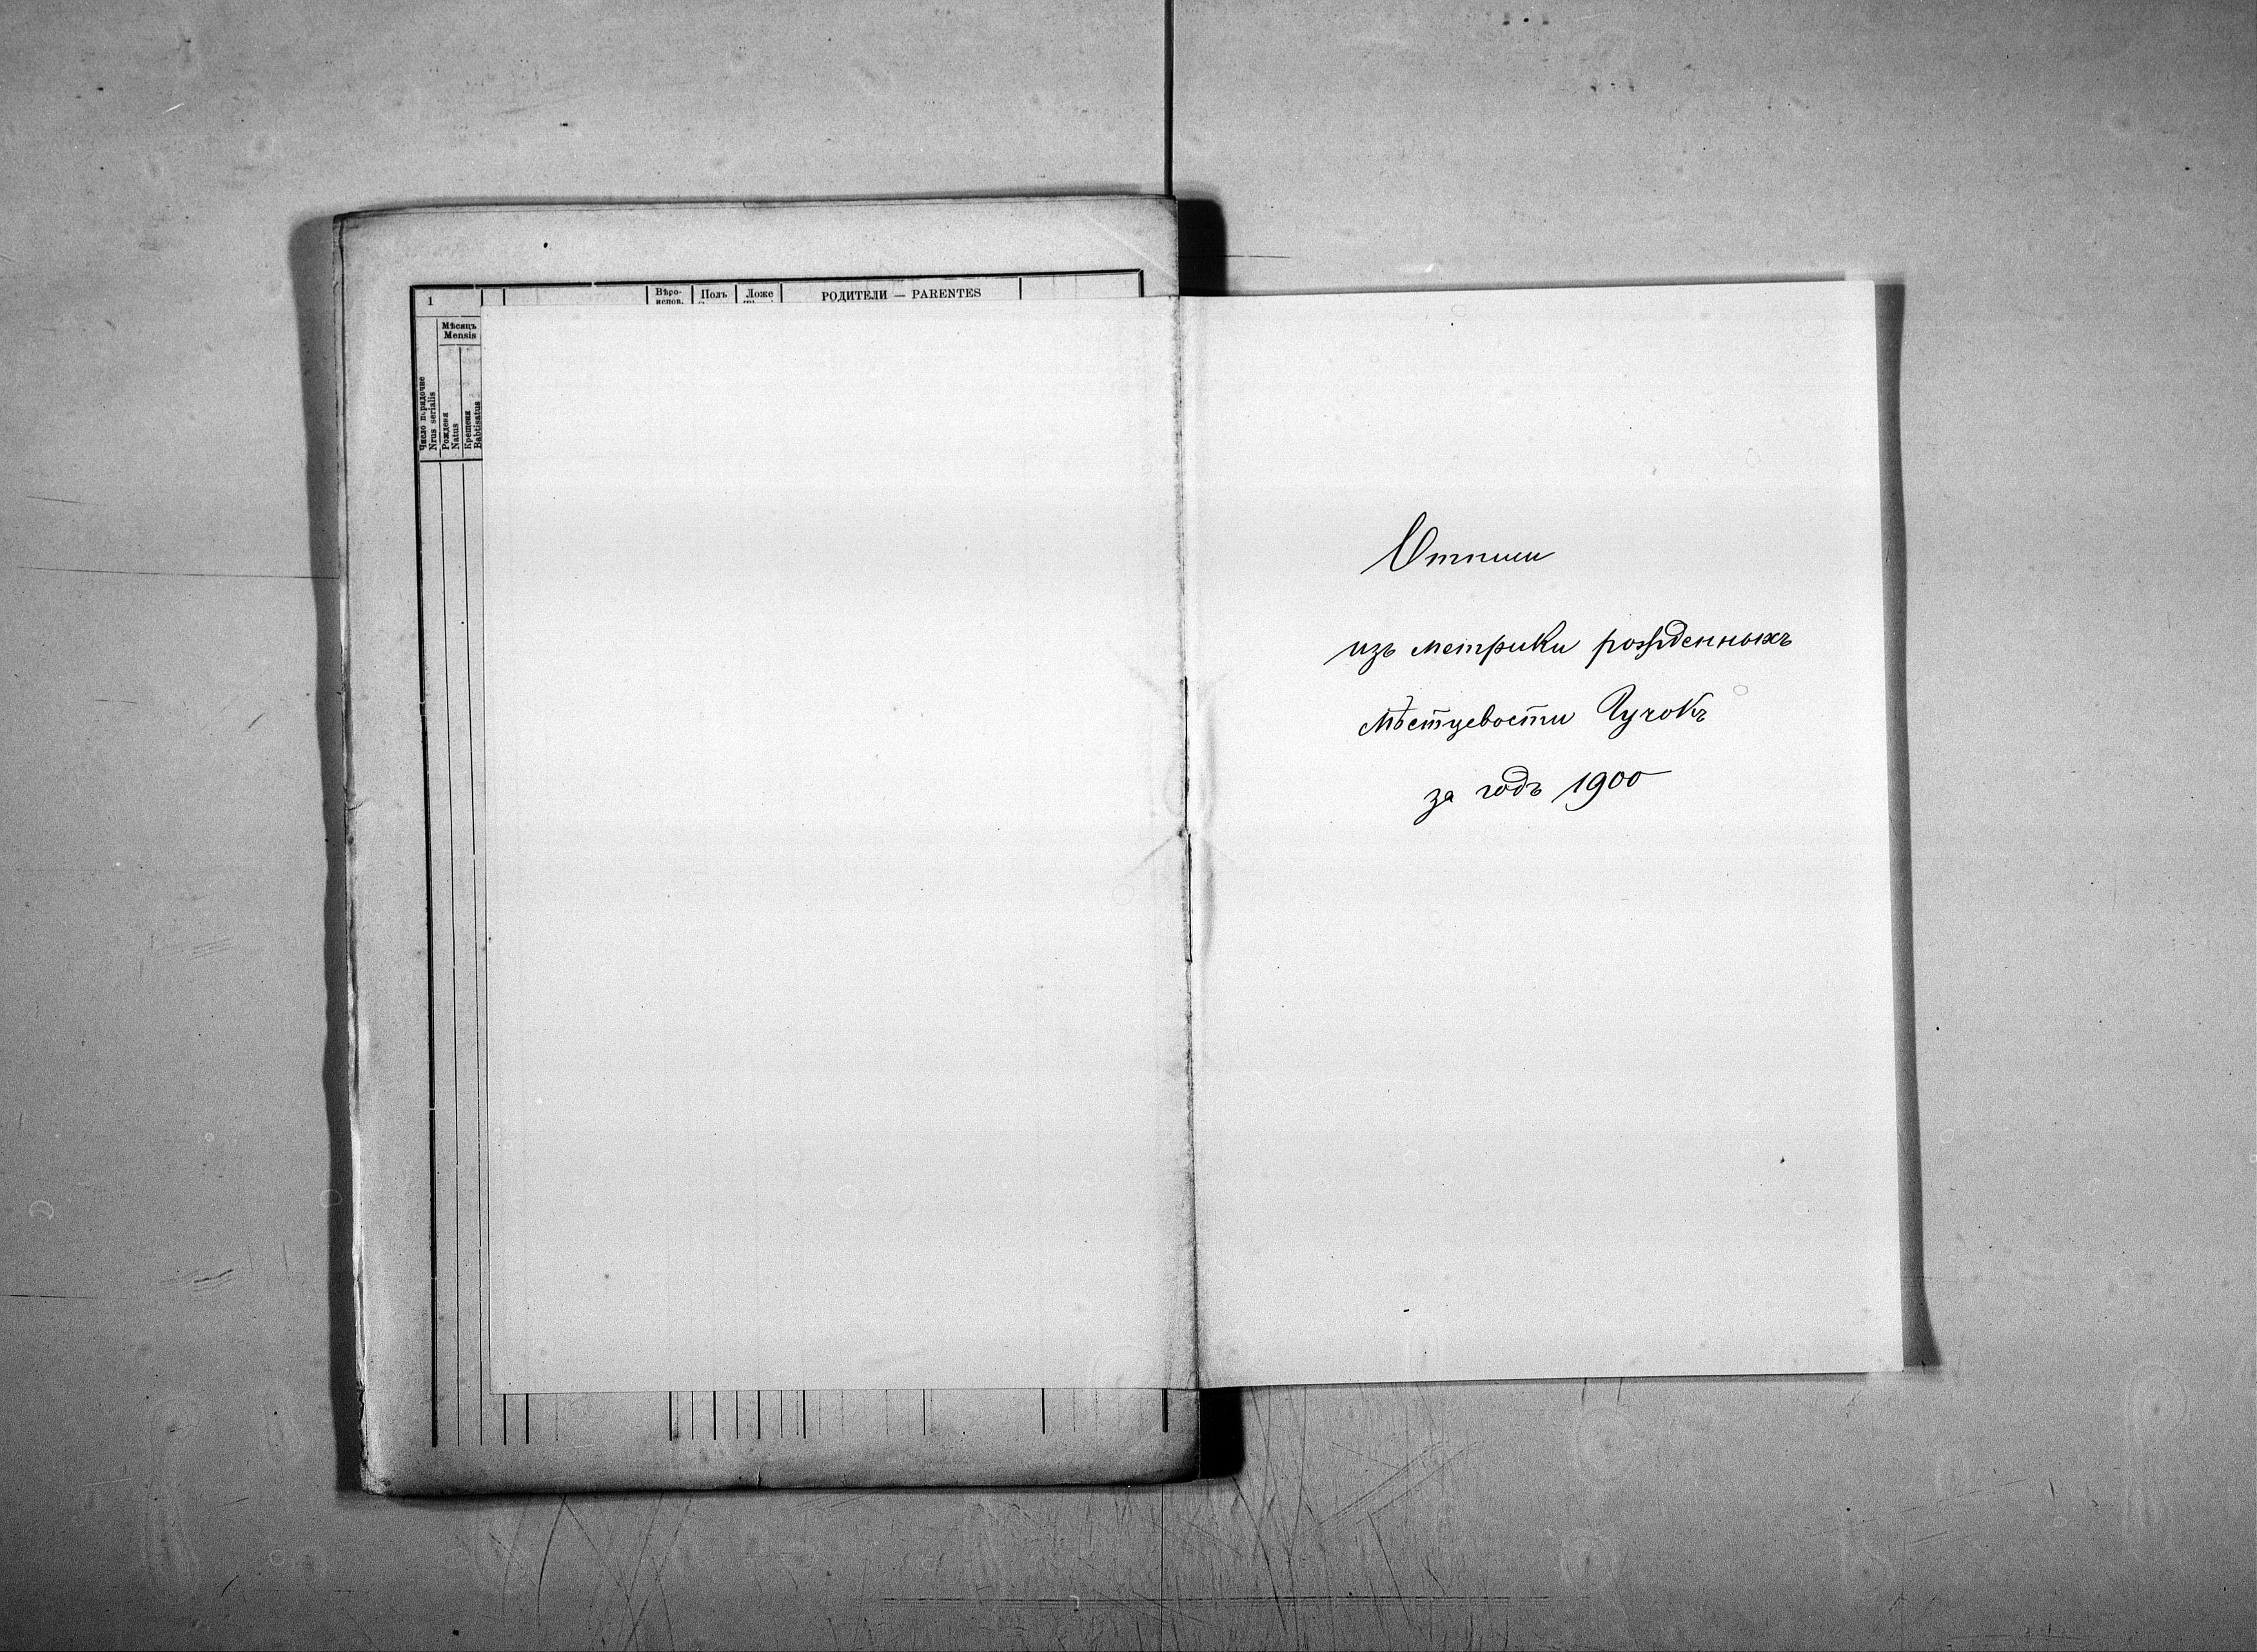 1
Вѣро-
испов.
Полъ
Ложе
РОДИТЕЛИ — PARENTES
Мѣсяцъ
Mensis
Число порядочне
Nrus serialis
Рожденя
Natus
Крещеня
Babtisatus
Отписи
изъ метрики рожденныхъ
Мѣстцевости
за годъ 1900